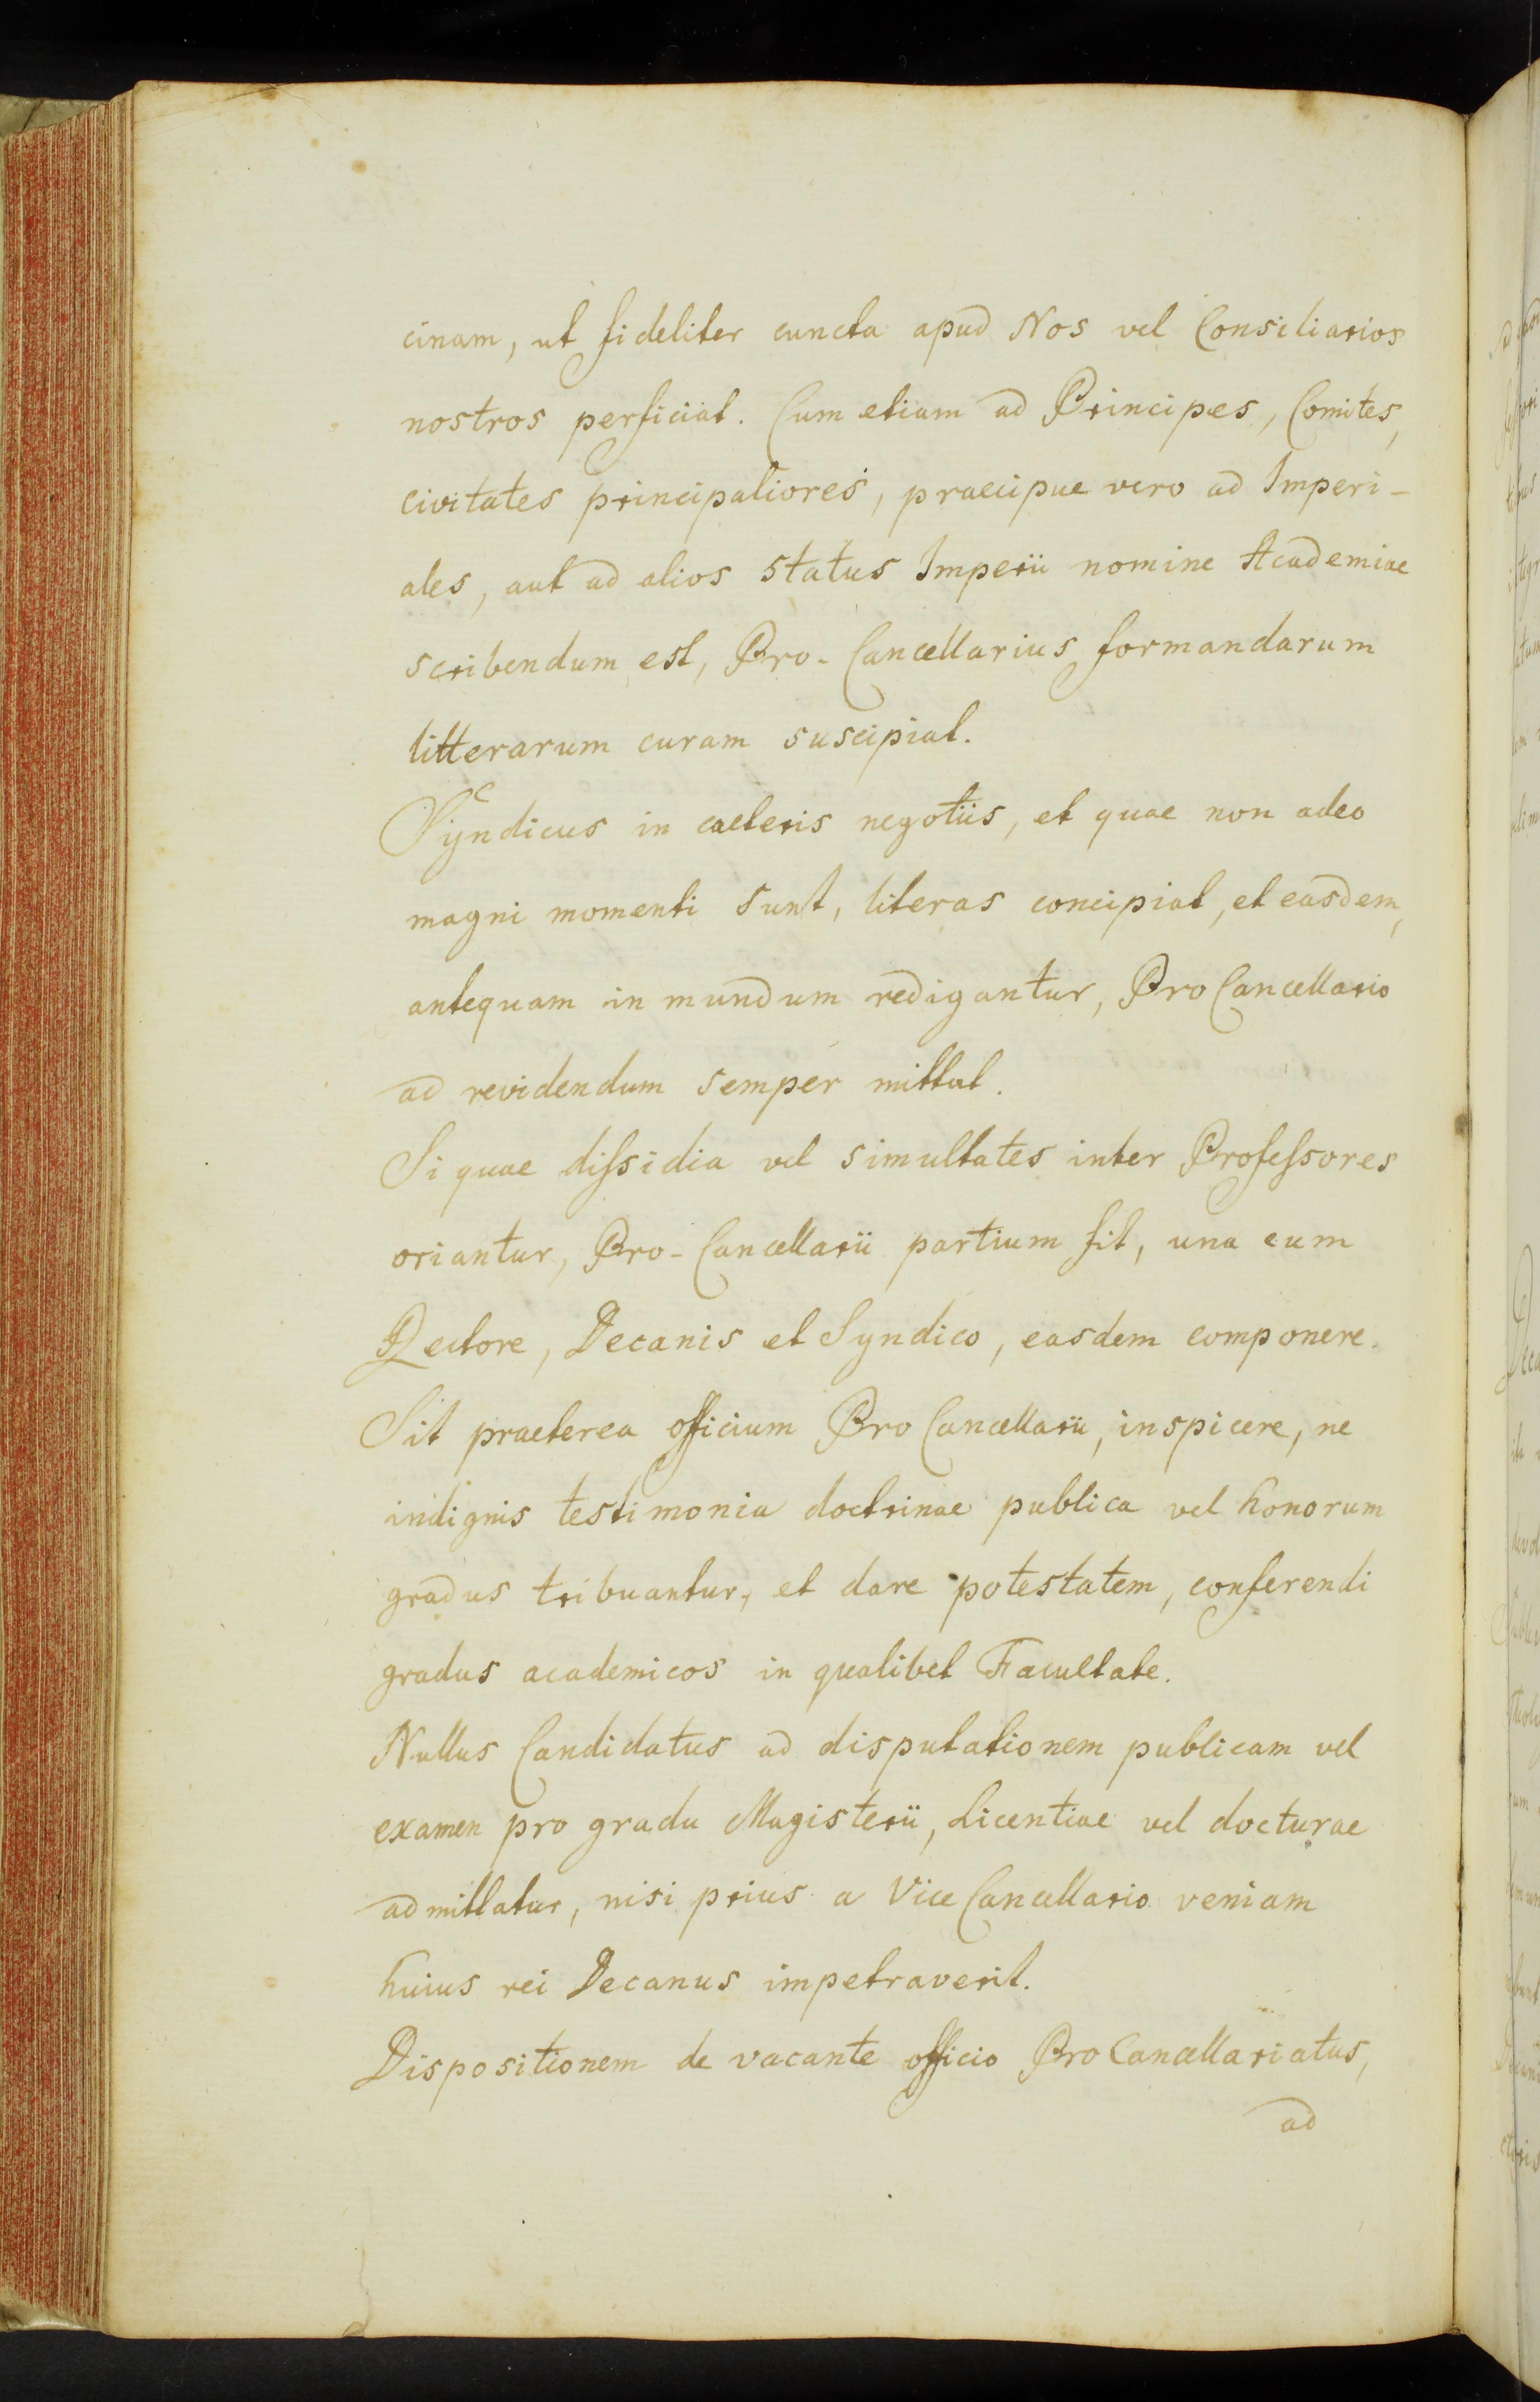 cinam, ut fideliter cuncta apud Nos vel Consiliarios
nostros perficiat. Cum etiam ad Principes, Comites,
civitates principaliores, praecipue vero ad Imperi-
ales, aut ad alios status Imperii nomine Academiae
scribendum est, Pro-Cancellarius formandarum
litterarum curam suscipiat.
Syndicus in caeteris negotiis, et quae non adeo
magni momenti sunt, literas concipiat, et easdem,
antequam in mundum redigantur, ProCancellario
ad revidendum semper mittat.
Si quae dissidia vel simultates inter Professores
oriantur, Pro-Cancellarii partium sit, una cum
Rectore, Decanis et Syndico, easdem componere.
Sit praeterea officium ProCancellarii, inspicere, ne
indignis testimonia doctrinae publica vel honorum
gradus tribuantur, et dare potestatem, conferendi
gradus academicos in qualibet Facultate.
Nullus Candidatus ad disputationem publicam vel
examen pro gradu Magisterii, Licentiae vel docturae
admittatur, nisi prius a ViceCancellario veniam
huius rei Decanus impetraverit.
Dispositionem de vacante officio ProCancellariatus,
ad